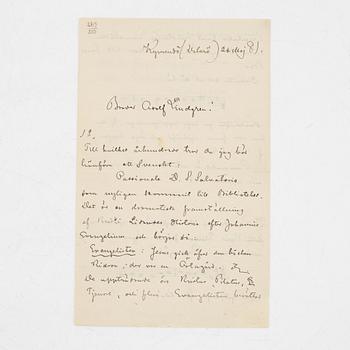 Kymendö (Dalarö) 26 Maj 81.
Broder Adolf Lindgren!
1º.
Till hvilket århundrade tror du jag bör
hänföra ett Svenskt:
Passionale D. S. Salvatoris
som nyligen kommit till Biblioteket.
Det är en dramatisk framställning
af Kristi Lidandes Historia efter Johannis
Evangelium och börjas så:
Evangelisten: Jesus gick öfver den bäcken
Kidron, der var en Örtagård.
De uppträdande är Kristus, Pilatus, En
Tjenare, och flera. Evangelisten berättar